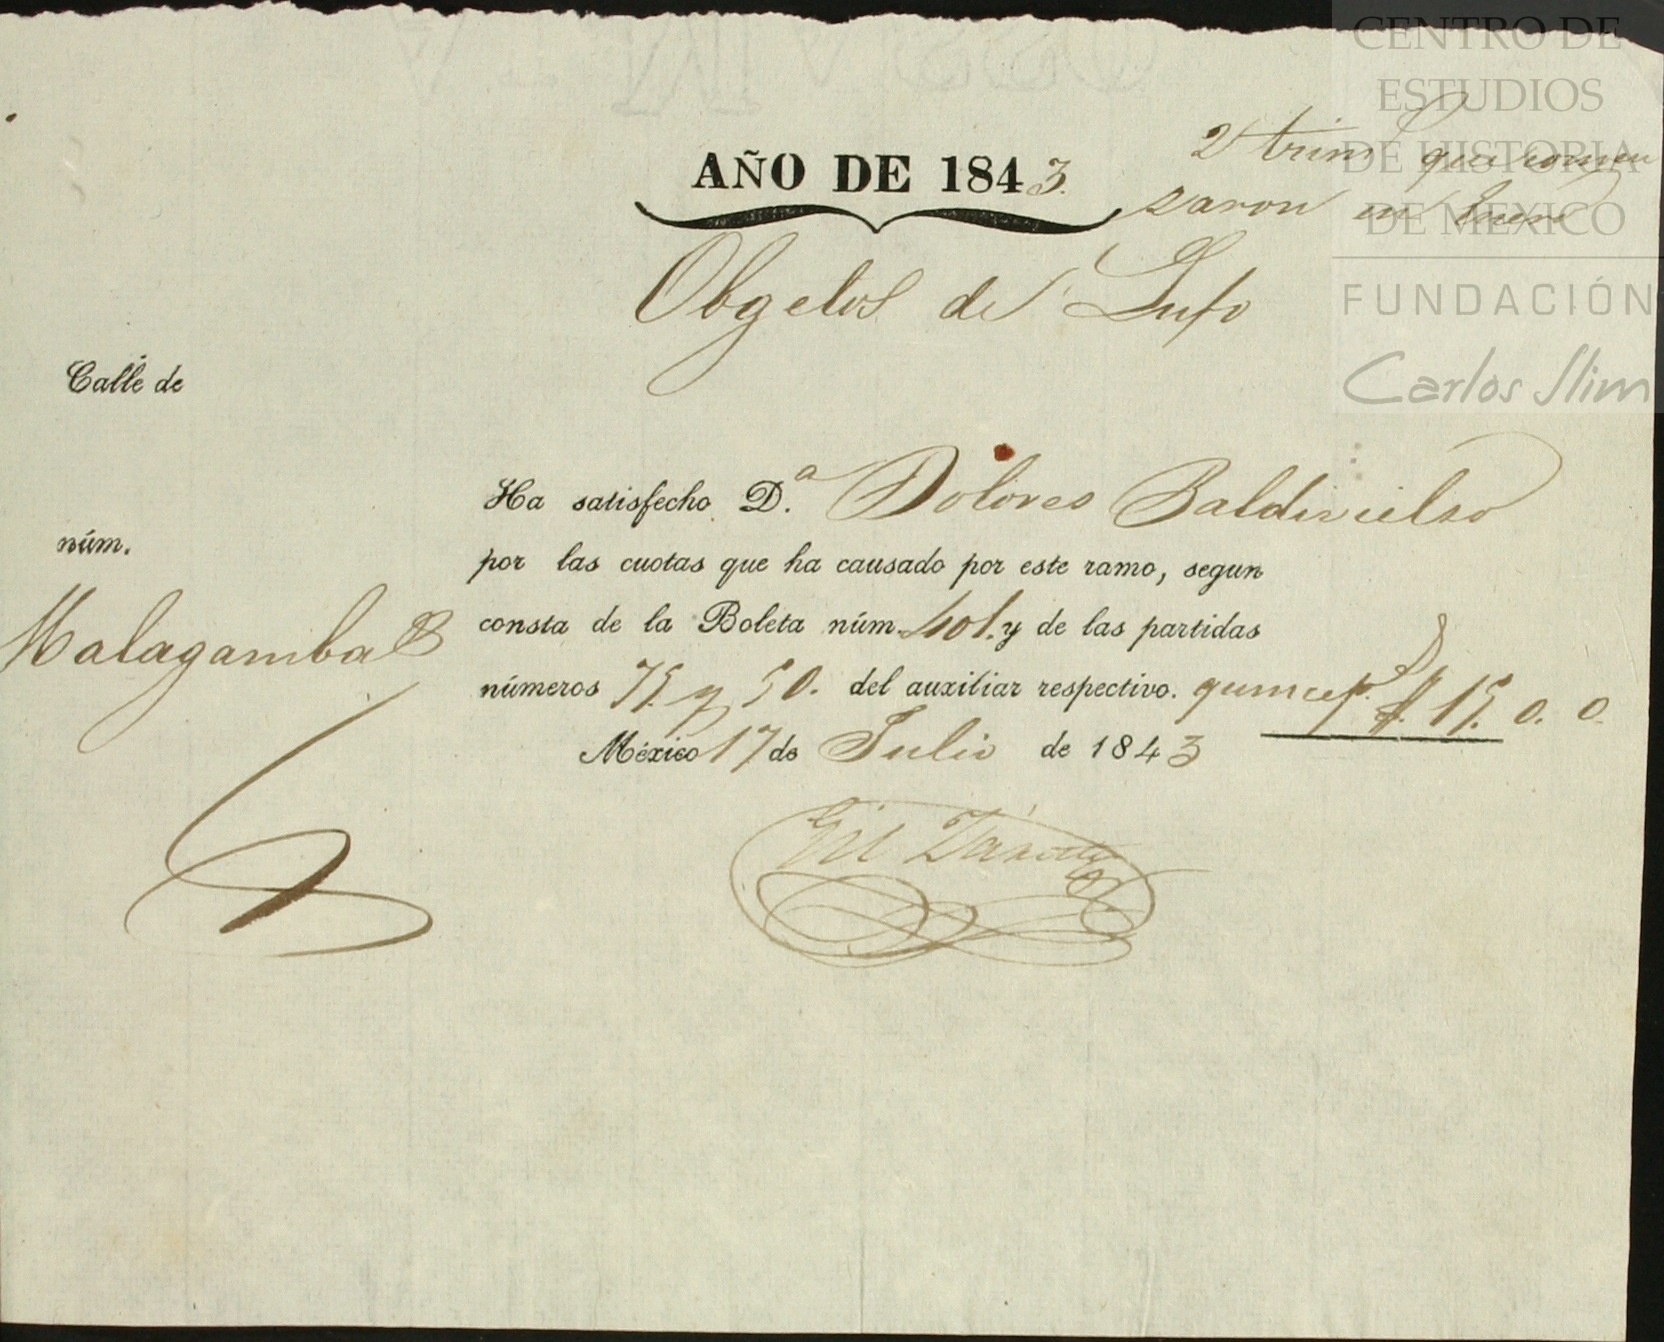 CENTRO DE
ESTUDIOS
DE HISTORIA
DE MÉXICO
FUNDACIÓN
Carlos Slim
2 trim que comen
saron en Enero
AÑO DE 1843.
Obgetos de Lujo
Calle de
Ha satisfecho D.a Dolores Baldivielso
núm.
por las cuotas que ha causado por este ramo, segun
consta de la Boleta núm. 401. y de las partidas
Malagamba
números 75. y 50. del auxiliar respectivo. quince p.s $ 15. 0. 0.
México 17 de Julio de 1843
Gil